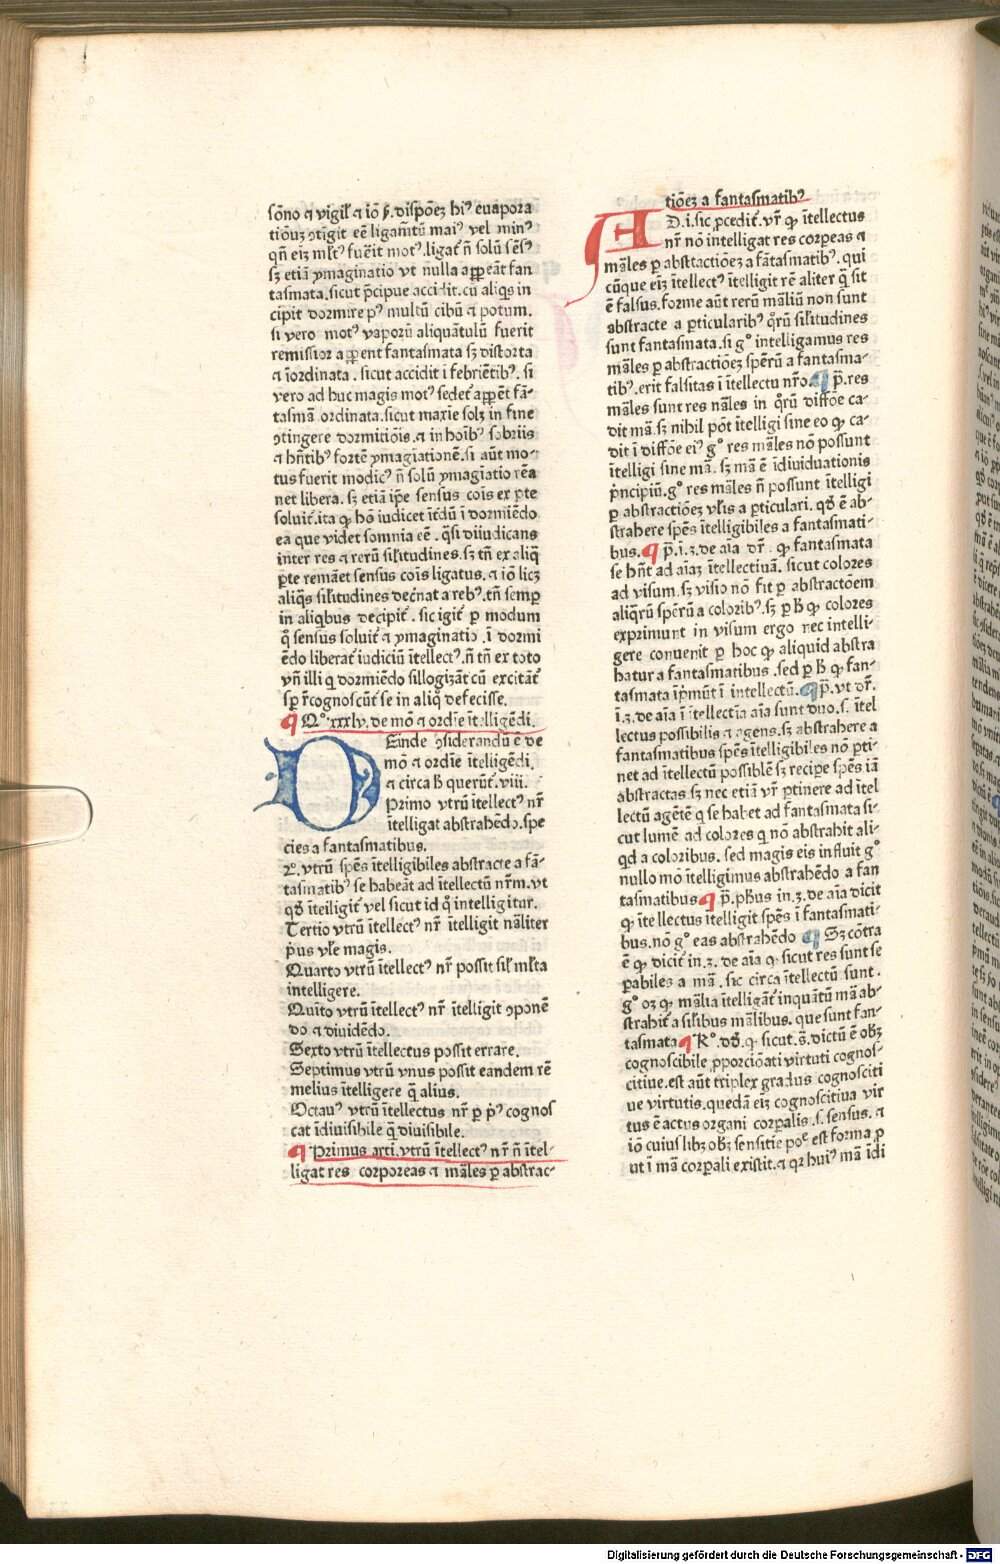 sōno ⁊ vigil̄ ⁊ iō ꝓ. dispōeꝫ hiꝰ euapora
tiōuꝫ ꝯtigit eē ligam̄tū maiꝰ vel minꝰ
qn̄ eiꝫ ml̄tꝰ fuēit motꝰ. ligat̄ n̄ solū sēsꝰ
sꝫ etiā ymaginatio vt nulla aꝑpeāt fan
tasmata. sicut p̄cipue accidit. cū aliq̄s in
cipit dormire pꝰ multū cibū ⁊ potum.
si vero motꝰ vaporū aliquātulū fuerit
remissior aꝑpent fantasmata sꝫ distorta
⁊ īordinata. sicut accidit i febriētibꝰ. si
vero ad huc magis motꝰ sedet̄ aꝑpēt fā-
tasmā ordinata. sicut maxīe solꝫ in fine
ꝯtingere dormitiōis. ⁊ in hoībꝰ sobriis
⁊ hn̄tibꝰ fortē ymagiationē. si aūt mo-
tus fuerit modicꝰ n̄ solū ymagīatio rēa
net libera. sꝫ etiā ip̄e sensus cois ex pte
soluit̄. ita ꝙ hō iudicet īt̄dū ī dormiēdo
ea que videt somnia eē. q̄si diiudicans
inter res ⁊ rerū sil̄itudines. sꝫ tn̄ ex aliq̄
ꝑte remāet sensus cois ligatus. ⁊ iō licꝫ
aliq̄s sil̄itudines dec̄nat a rebꝰ. tn̄ semꝑ
in aliqbus decipit̄. sic igit̄ ꝑ modum
q̄ sensus soluit̄ ⁊ ymaginatio. ī dormi
ēdo liberat̄ iudiciū ītellectꝰ. n̄ tn̄ ex toto
vn̄ illi q̄ dormiēdo sillogizāt cū excitāt̄
sꝑ r̄cognoscūt se in aliq̄ defecisse.
¶ Qꝰ. xxxlv. de mō ⁊ ordīe ītelligēdi.
DEinde ꝯsiderandū ē de
mō ⁊ ordīe ītelligēdi,
⁊ circa h̄ querūt̄. viii.
Primo vtrū ītellectꝰ nr̄
ītelligat abstrahēdo. spe
cies a fantasmatibus.
2ꝰ. vtrū spēs ītelligibiles abstracte a fā-
tasmatibꝰ se habeāt ad ītellectū nr̄m. vt
qd̄ īteiligit̄ vel sicut id q̄ intelligitur.
Tertio vtrū ītellectꝰ nr̄ ītelligit nāliter
p̄us vl̄e magis.
Quarto vtrū ītellectꝰ nr̄ possit sil̄ ml̄ta
intelligere.
Quīto vtrū ītellectꝰ nr̄ ītelligit ꝯponē
do ⁊ diuidēdo.
Sexto vtrū ītellectus possit errare.
Septimus vtrū vnus possit eandem rē
melius ītelligere q̄ alius.
Octauꝰ vtrū ītellectus nr̄ ꝑ pꝰ cognos
cat īdiuisibile q̄ diuisibile.
¶ Primus arti. vtrū ītellectꝰ nr̄ n̄ ītel-
ligat res corporeas ⁊ māles ꝑ abstrac-
tiōeꝫ a fantasmatibꝰ
AD. i. sic ꝓcedit̄. vr̄ ꝙ ītellectus
nr̄ nō intelligat res corꝑeas ⁊
māles ꝑ absttactiōeꝫ a fātasmatibꝰ. qui
cūque eīꝫ ītellectꝰ ītelligit rē aliter q̄ sit
ē falsus. forme aūt rerū māliū non sunt
abstracte a ꝑticularibꝰ q̄rū sil̄itudines
sunt fantasmata. si gꝰ intelligamus res
māles ꝑ abstractiōeꝫ spērū a fantasma-
tibꝰ. erit falsitas ī ītellectu nr̄o. ¶ p̄. res
māles sunt res nāles in q̄rū diffōe ca-
dit mā. sꝫ nihil pōt ītelligi sine eo ꝙ ca-
dit ī diffōe eiꝰ gꝰ res māles nō possunt
ītelligi sine mā. sꝫ mā ē īdiuiduationis
p̄ncipiū. gꝰ res māles n̄ possunt ītelligi
ꝑ abstractiōeꝫ vl̄is a ꝑticulari. qd̄ ē ab-
strahere spēs ītelligibiles a fantasmati-
bus. ¶ p̄. i. 3. de aīa dr̄. ꝙ fantasmata
se hn̄t ad aīaꝫ ītellectiuā. sicut colores
ad visum. sꝫ visio nō fit ꝑ abstractōem
aliq̄rū spērū a coloribꝰ. sꝫ ꝑ h̄ ꝙ colores
exprimunt in visum ergo nec intelli-
gere conuenit ꝑ hoc ꝙ aliquid abstra
hatur a fantasmatibus. sed ꝑ h̄ ꝙ fan-
tasmata īpmūt ī intellectū. ¶ p̄. vt dr̄.
ī. 3. de aīa ī ītellectīa aīa sunt duo. s. ītel
lectus possibilis ⁊ agens. sꝫ abstrahere a
fantasmatibus spēs ītelligibiles nō ꝑti-
net ad ītellectū possiblē sꝫ recipe spēs iā
abstractas. sꝫ nec etiā vr̄ ꝑtinere ad ītel
lectū agētē q̄ se habet ad fantasmata si-
cut lumē ad colores q nō abstrahit ali-
qd a coloribus. sed magis eis influit gꝰ
nullo mō ītelligimus abstrahēdo a fan
tasmatibus ¶ p̄. pħus in. 3. de aīa dicit
ꝙ īte llectus ītelligit spēs ī fantasmati-
bus. nō gꝰ eas abstrahēdo ¶ Sꝫ cōtra
ē ꝙ dicit̄ in. 3. de aīa ꝙ sicut res sunt se
ꝑabiles a mā. sic circa ītellectū sunt.
gꝰ oꝫ ꝙ mālia ītelligāt̄ inquātū mā ab-
strahit̄ a sil̄ibus mālibus. que sunt fan-
tasmata ¶ Rꝰ. dd̄. ꝙ sicut. s̄. dictū ē obꝫ
cognoscibile ꝓporciōati virtuti cognos-
citiue. est aūt triplex gradus cognosciti
ue virtutis. quedā eīꝫ cognoscitiua vir
tus ē actus organi corꝑalis. s. sensus. ⁊
iō cuius libꝫ obꝫ sensitīe poᵉ est forma ꝓ
ut ī mā corꝑali existit. ⁊ qꝛ huiꝰ mā īdi
Digitalisierung gefördert durch die Deutsche Forschungsgemeinschaft - DFG